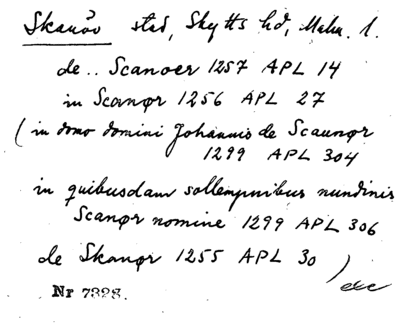 Skanör stad, Skytts hd, Malm. l.
de .. Scanoer 1257 APL 14
in Scanør 1256 APL 27
(in domo domini Johannis de Scaunør
1299 APL 304
in quibusdam sollempnibus nundinis
Scanør nomine 1299 APL 306
de Skanør 1255 APL 30 )
etc
Nr 7328.